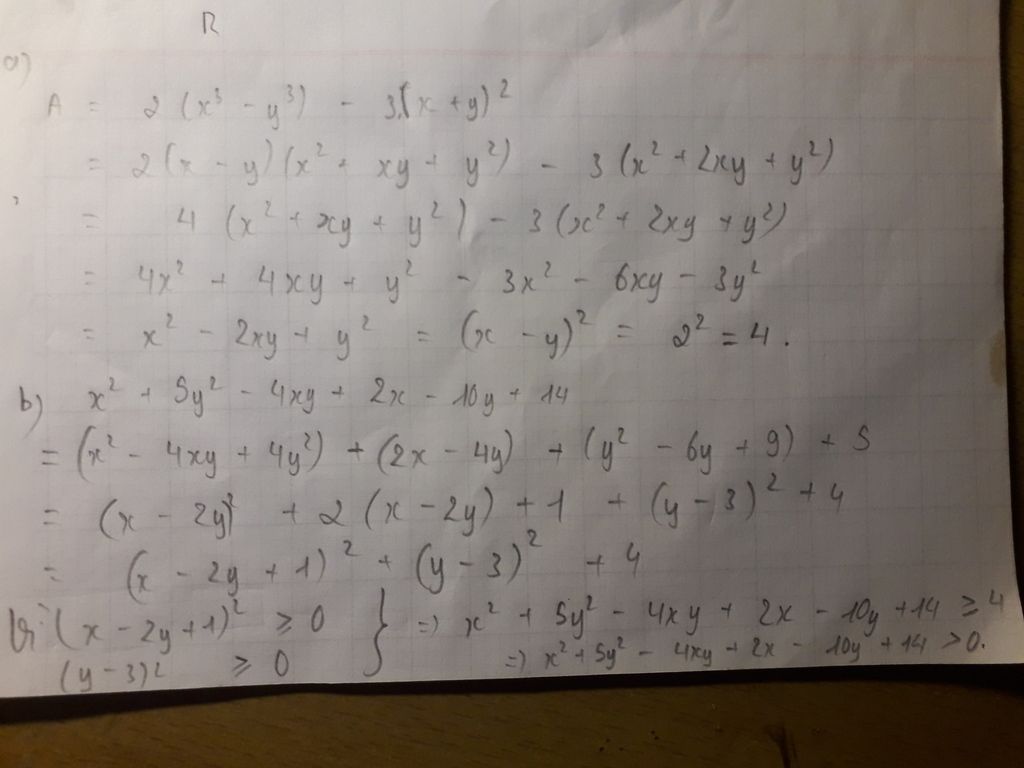 R
a)
A = 2(x³ - y³) - 3.(x + y)²
= 2(x - y)(x² + xy + y²) - 3(x² + 2xy + y²)
= 4(x² + xy + y²) - 3(x² + 2xy + y²)
= 4x² + 4xy + y² - 3x² - 6xy - 3y²
= x² - 2xy + y² = (x - y)² = 2² = 4.
b) x² + 5y² - 4xy + 2x - 10y + 14
= (x² - 4xy + 4y²) + (2x - 4y) + (y² - 6y + 9) + 5
= (x - 2y)² + 2(x - 2y) + 1 + (y - 3)² + 4
= (x - 2y + 1)² + (y - 3)² + 4
Vì (x - 2y + 1)² ≥ 0 } => x² + 5y² - 4xy + 2x - 10y + 14 ≥ 4
(y - 3)² ≥ 0 => x² + 5y² - 4xy + 2x - 10y + 14 > 0.